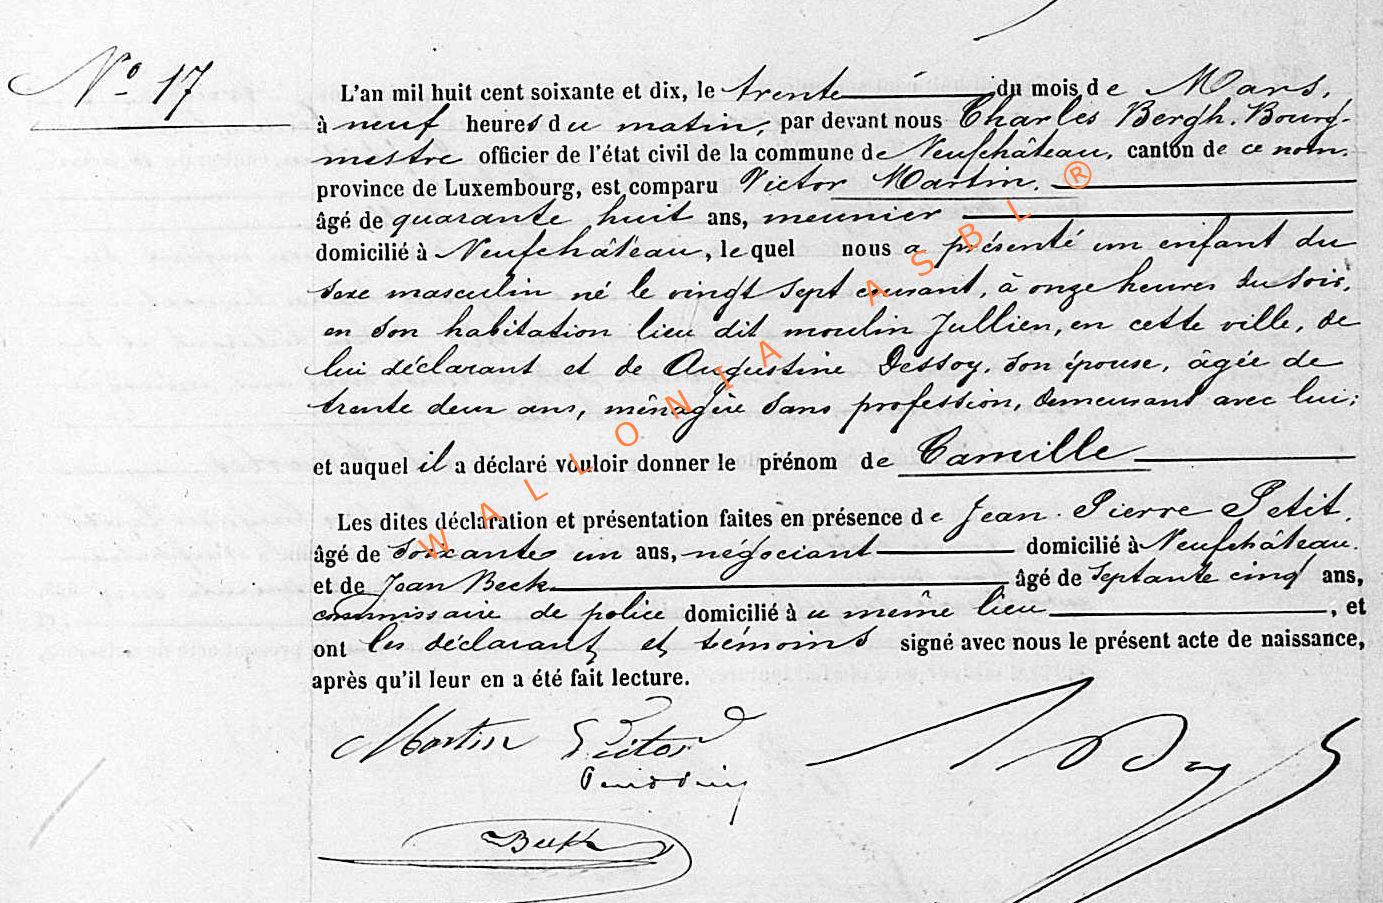 N° 17
L'an mil huit cent soixante et dix, le trente du mois de Mars,
à neuf heures du matin, par devant nous Charles Bergh, Bourg-
mestre officier de l'état civil de la commune de Neufchâteau, canton de ce nom,
province de Luxembourg, est comparu Victor Martin,
âgé de quarante huit ans, meunier
domicilié à Neufchâteau, lequel nous a présenté un enfant du
sexe masculin né le vingt sept courant, à onze heures du soir,
en son habitation lieu dit moulin Jullien, en cette ville, de
lui déclarant et de Augustine Dessoy, son épouse, âgée de
trente deux ans, ménagère sans profession, demeurant avec lui;
et auquel il a déclaré vouloir donner le prénom de Camille
Les dites déclaration et présentation faites en présence de Jean Pierre Petit,
âgé de soixante un ans, négociant domicilié à Neufchâteau
et de Jean Beck âgé de septante cinq ans,
commissaire de police domicilié à u même lieu, et
ont les déclarant et témoins signé avec nous le présent acte de naissance,
après qu'il leur en a été fait lecture.
Martin Victor
Beck
WALLONIA ASBL ®